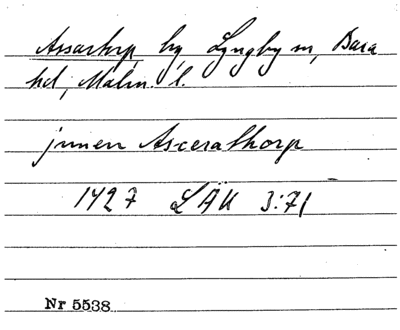 Assartorp by, Lyngby sn, Bara
hd, Malm. l.
j nnen Ascerathorp
1427 LÄK 3:71
Nr 5538